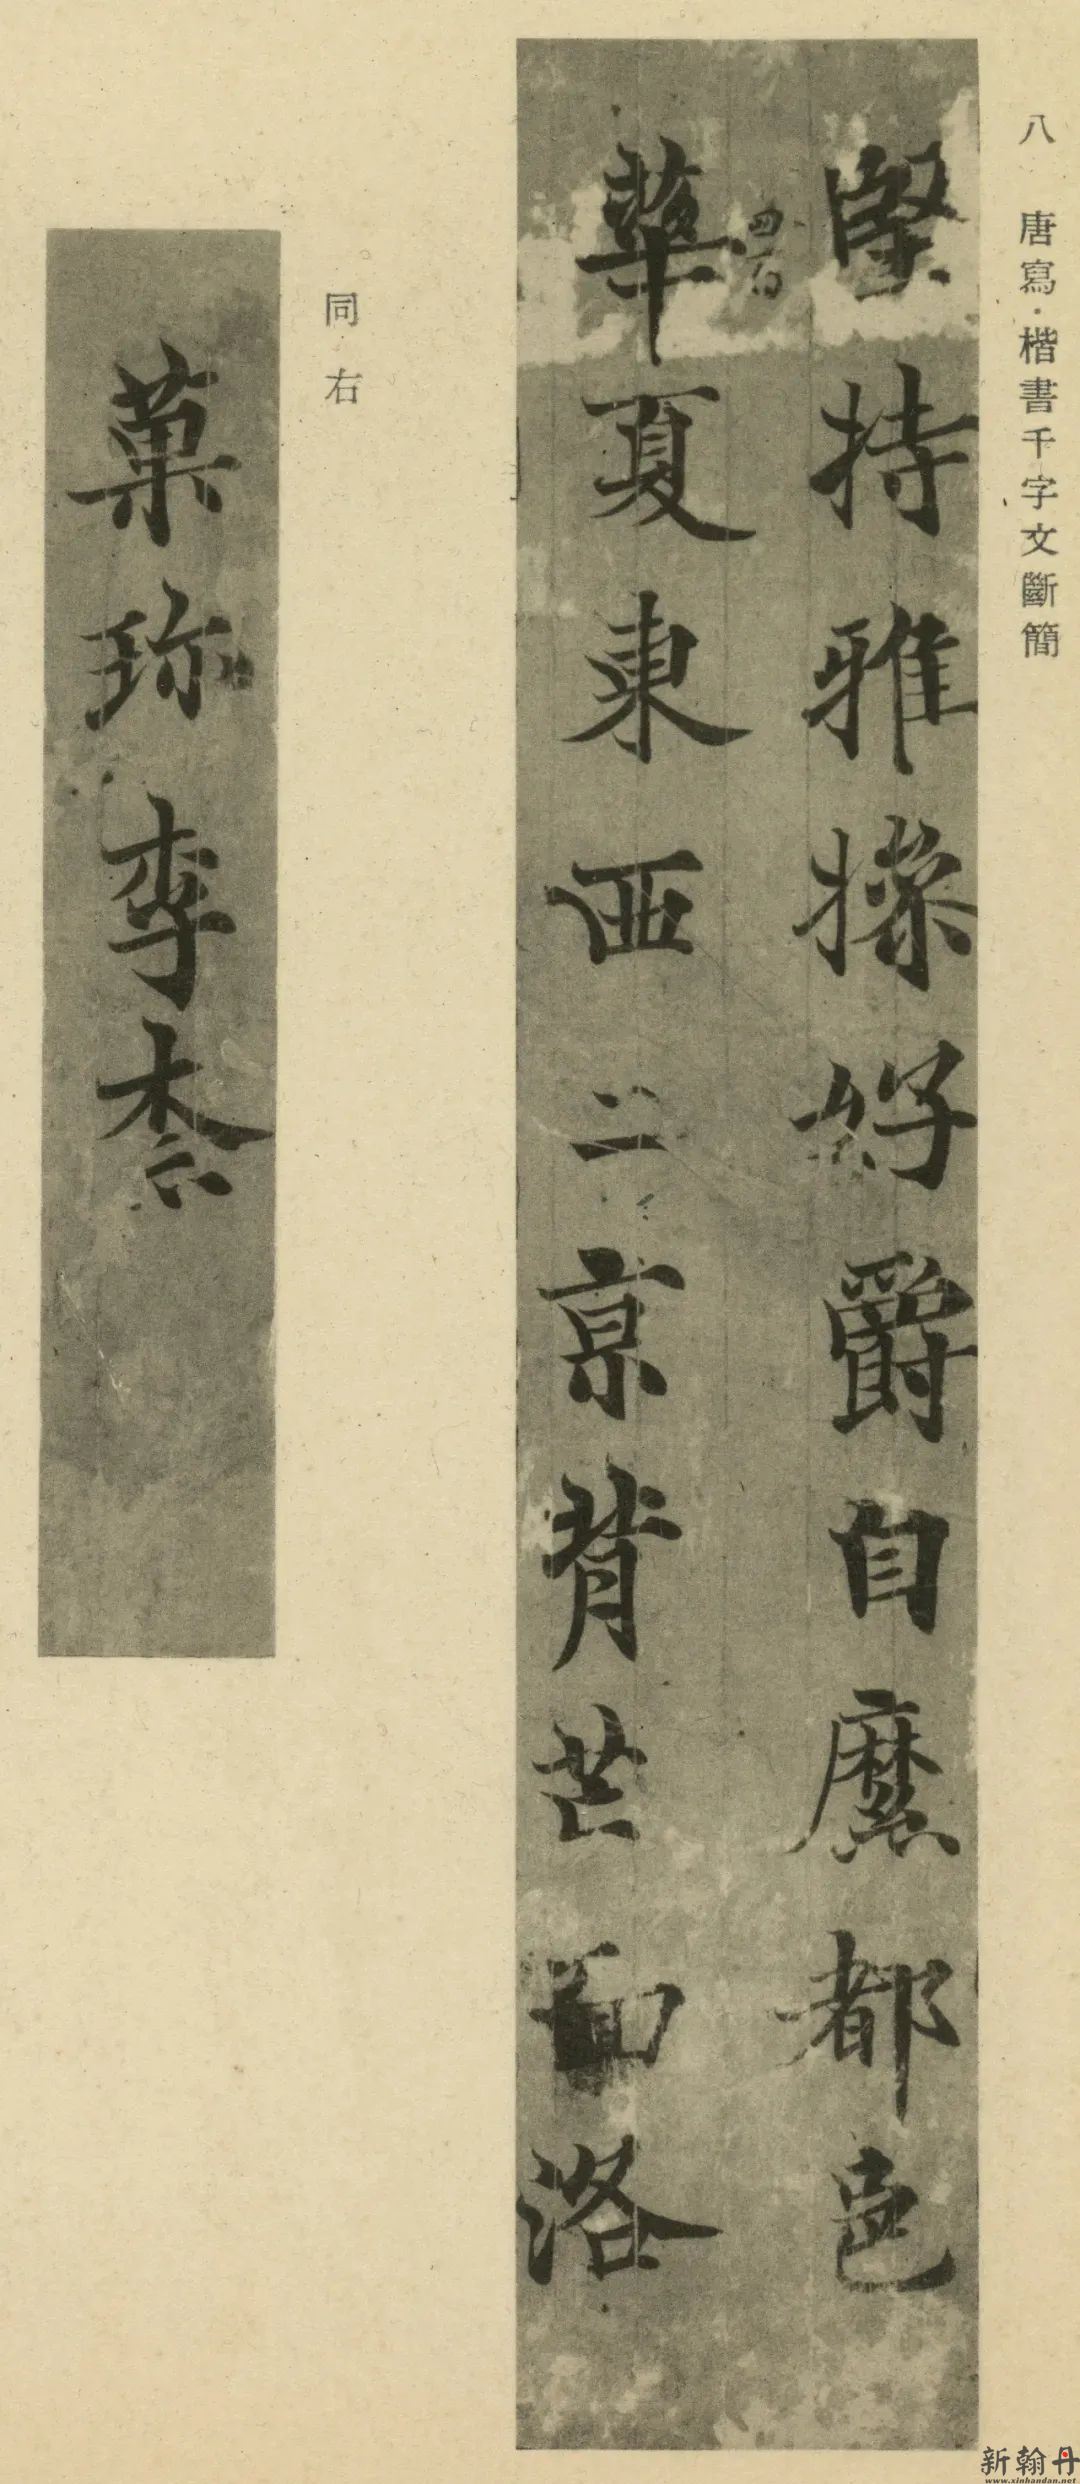 八 唐寫·楷書千字文斷簡
堅持雅操好爵自縻都邑
四百
華夏東西二京背芒面洛
同右
菓珎李柰
新翰丹
www.xinhandan.net